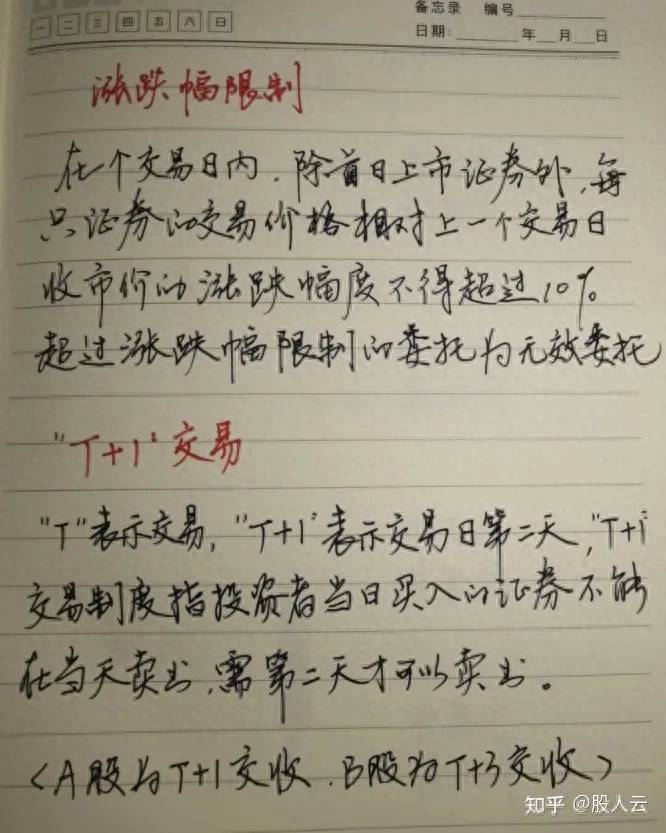 备忘录 编号
一 二 三 四 五 六 日
日期: 年 月 日
涨跌幅限制
在一个交易日内,除首日上市证券外,每
只证券的交易价格相对上一个交易日
收市价的涨跌幅度不得超过10%
超过涨跌幅限制的委托为无效委托
"T+1"交易
"T"表示交易,"T+1"表示交易日第二天,"T+1"
交易制度指投资者当日买入的证券不能
在当天卖出,需第二天才可以卖出。
<A股为T+1交收.B股为T+3交收>
知乎 @股人云